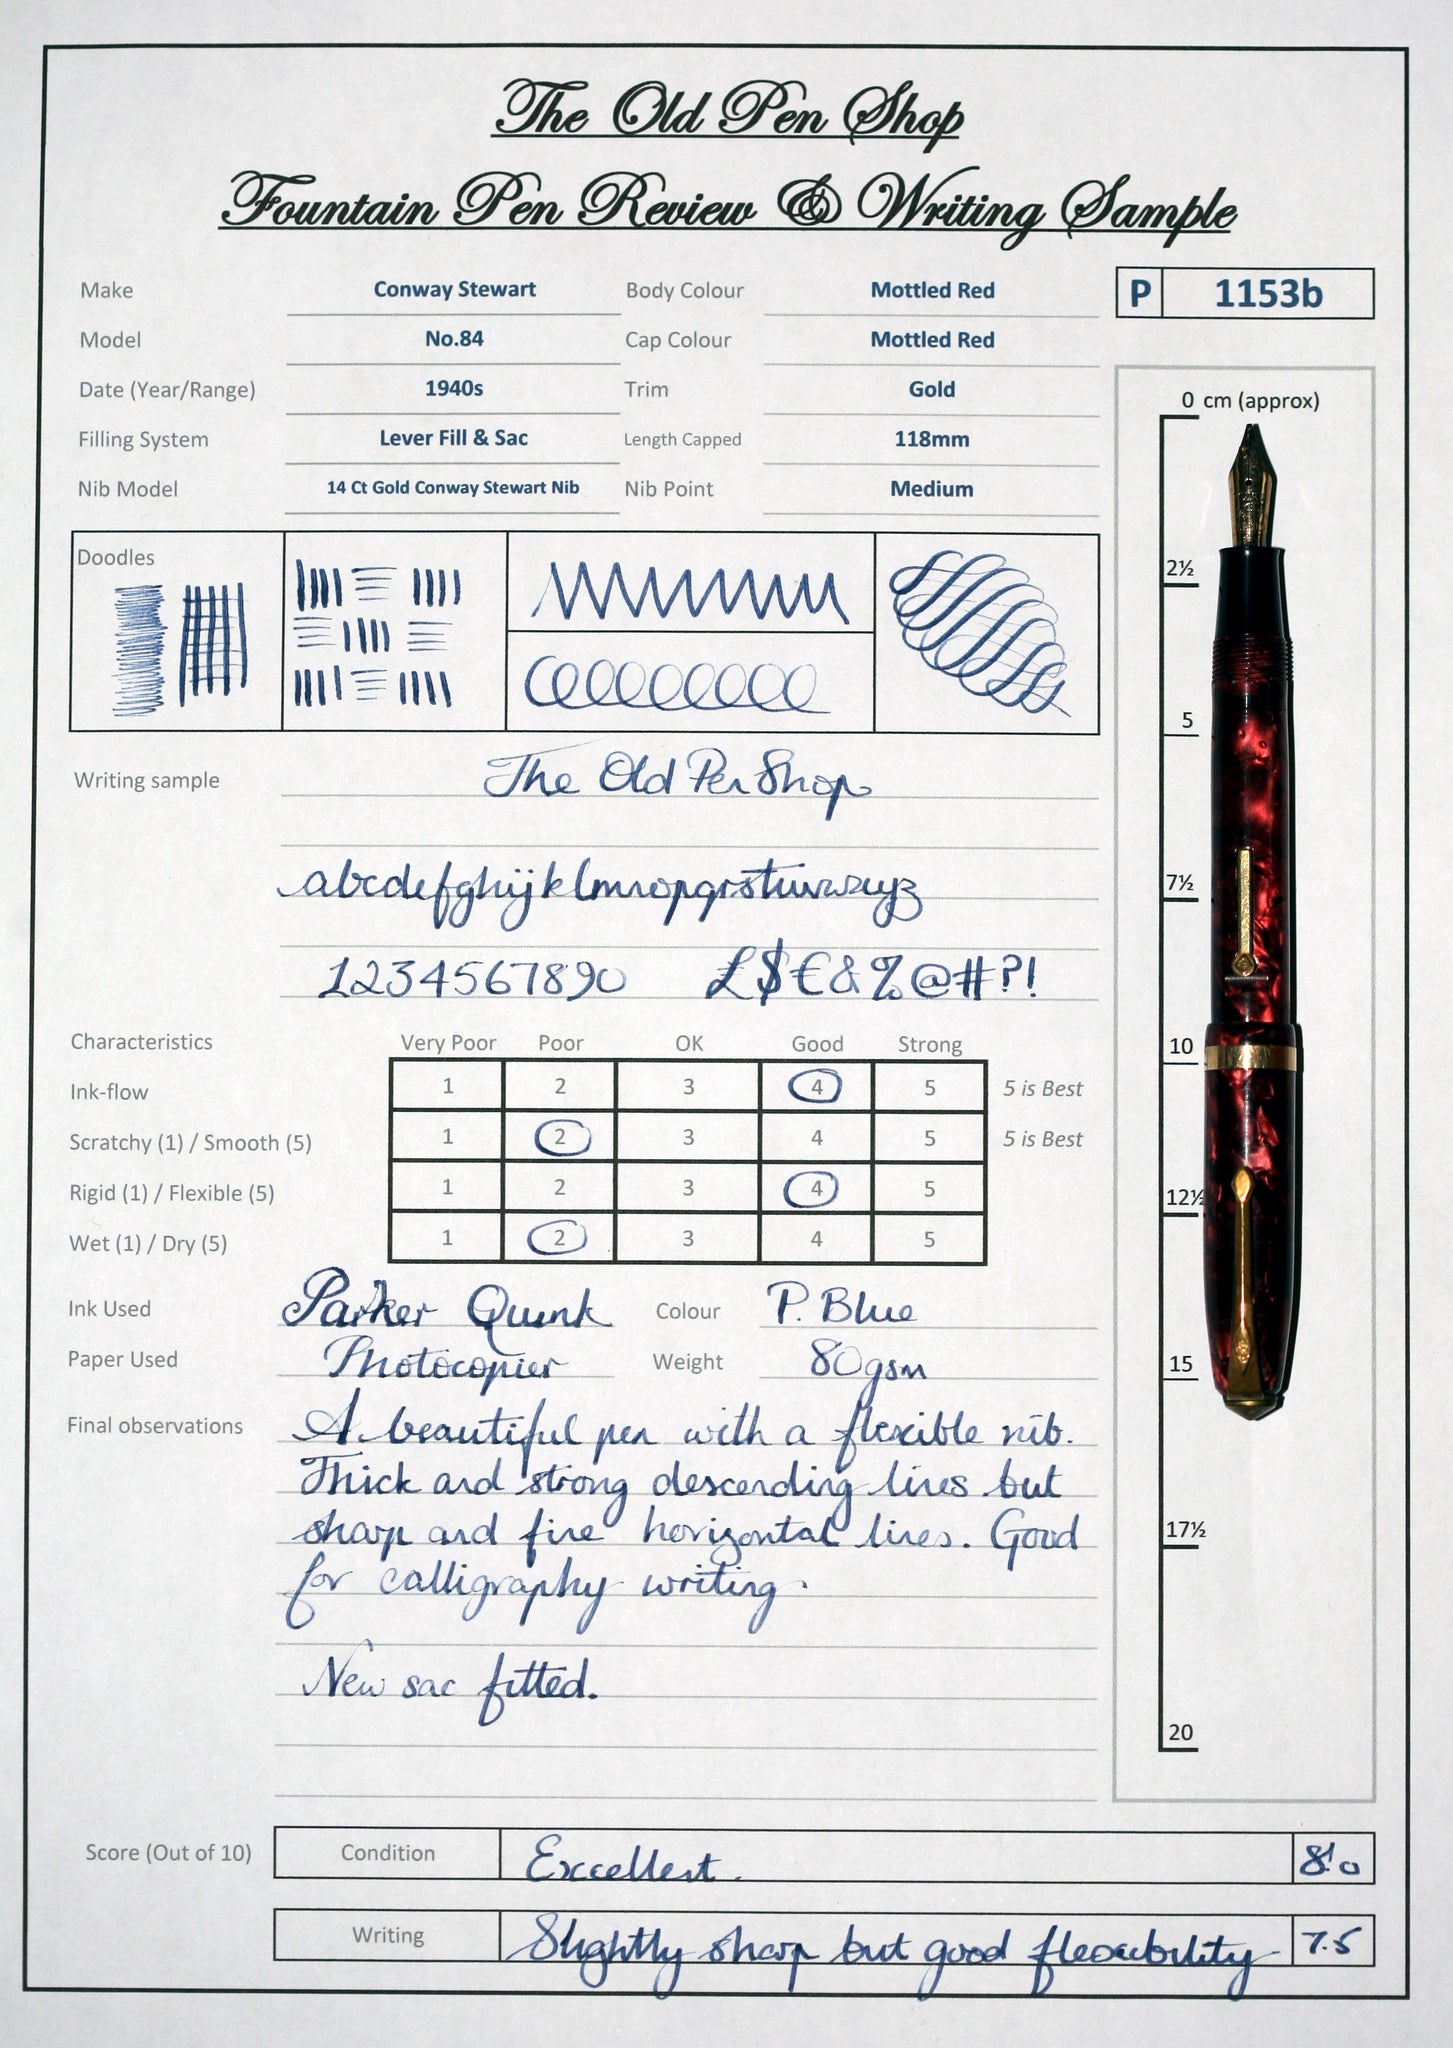 The Old Pen Shop
Fountain Pen Review & Writing Sample
Make Conway Stewart Body Colour Mottled Red P 1153b
Model No.84 Cap Colour Mottled Red
Date (Year/Range) 1940s Trim Gold
Filling System Lever Fill & Sac Length Capped 118mm
Nib Model 14 Ct Gold Conway Stewart Nib Nib Point Medium
0 cm (approx)
2½
5
7½
10
12½
15
17½
20
Doodles
Writing sample The Old Pen Shop
abcdefghijklmnopqrstuvwxyz
1234567890 £$€&%@#?!
Characteristics Very Poor Poor OK Good Strong
Ink-flow 1 2 3 4 5 5 is Best
Scratchy (1) / Smooth (5) 1 2 3 4 5 5 is Best
Rigid (1) / Flexible (5) 1 2 3 4 5
Wet (1) / Dry (5) 1 2 3 4 5
Ink Used Parker Quink Colour P. Blue
Paper Used Photocopier Weight 80gsm
Final observations A beautiful pen with a flexible nib.
Thick and strong descending lines but
sharp and fine horizontal lines. Good
for calligraphy writing.
New sac fitted.
Score (Out of 10) Condition Excellent. 8.0
Writing Slightly sharp but good flexibility 7.5